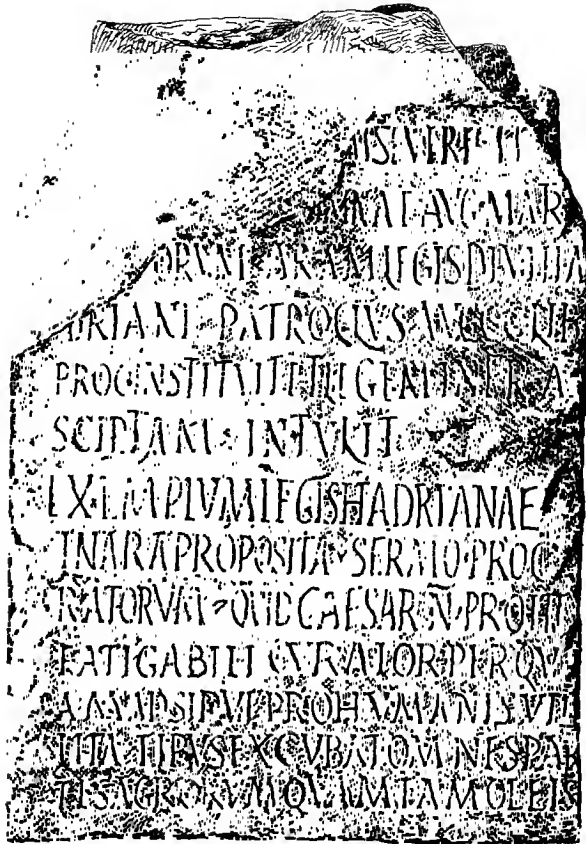 IS SEVERI
DOMNAE AVG MATR
ORVM ARAM LEGIS DIVI HA
DRIANI PATROCLVS AVGGG LIB
PROC INSTITVIT ET LEGEM INFRA
SCIPTAM INTVLIT
EXEMPLVM LEGIS HADRIANAE
IN ARA PROPOSITA SERMO PROC
RATORVM CAESAR N PRO
FATIGABILI CVRA PER QV
PRO HVMANIS VTI
LITATIBVS EXCVBAT OMNES PAR
TIS AGRORVM QVAM TAM OLEIS